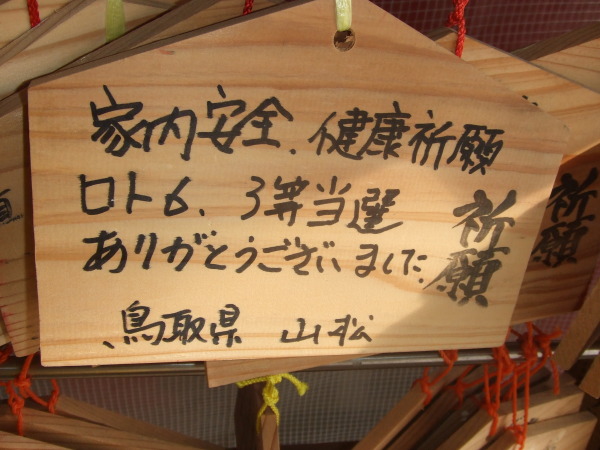 家内安全、健康祈願
ロト6、3等当選
ありがとうございました
鳥取県 山松
祈願
祈願